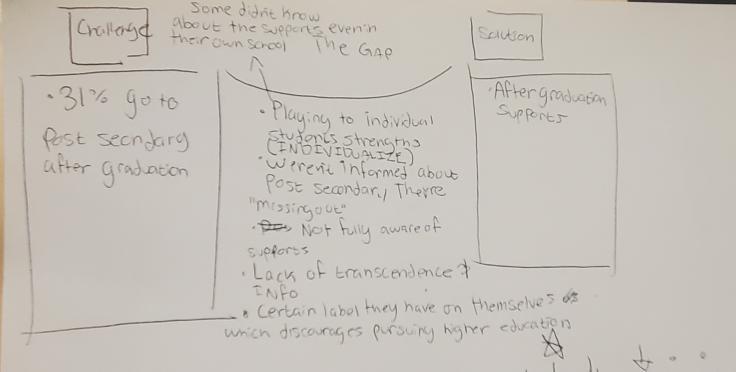 Challenge
Some didn't know
about the supports even in
their own school
The GAP
Solution
• 31% go to
Post secndary
after graduation
• Playing to individual
students strengths
(INDIVIDUALIZE)
• Weren't informed about
Post secondary They're
"missing out"
• Not fully aware of
supports
• Lack of transcendence &
INFO
• Certain label they have on themselves
which discourages pursuing higher education
• After graduation
Supports